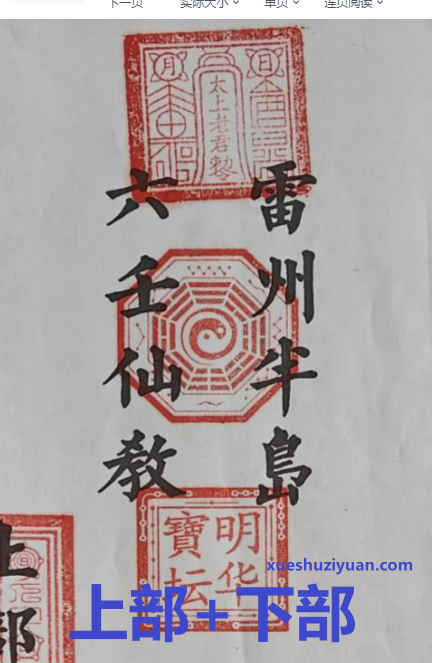 下一页 实际大小 单页 连页阅读
日
月
太上老君敕
雷州半島
六壬仙教
明华
寶坛
上部
xueshuziyuan.com
上部+下部